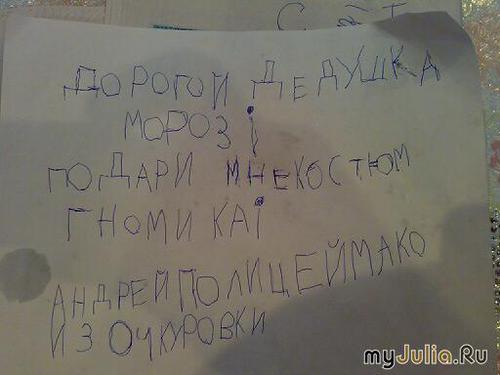 С Т
ДОРОГОЙ ДЕДУШКА
МОРОЗ¡
ПОДАРИ МНЕКОСТЮМ
ГНОМИКА¡
АНДРЕЙПОЛИЦЕЙМАКО
ИЗ ОЧКУРОВКИ
myJulia.Ru